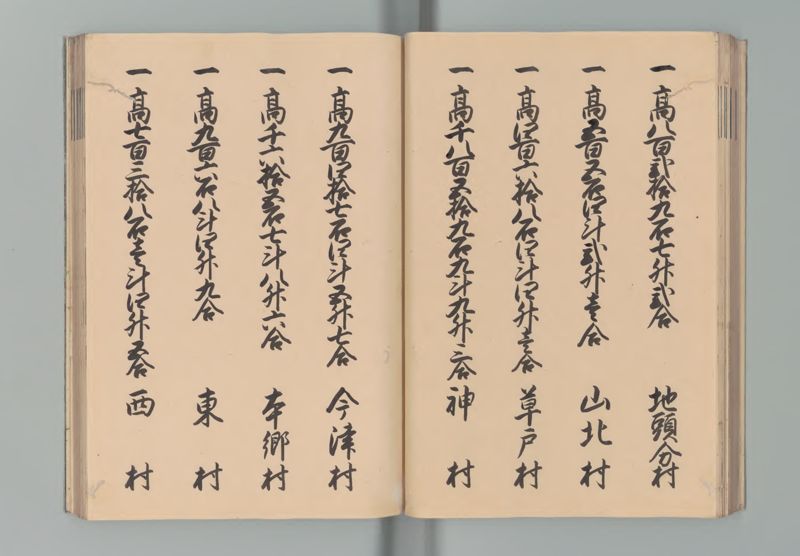 一高八百弐拾九石七升弐合 地頭分村
一高五百五石四斗弐升壱合 山北村
一高四百六拾八石四斗四升壱合 草戸村
一高千八百五拾九石九斗九升三合 神村
一高九百四拾七石四斗五升七合 今津村
一高千六拾五石七斗八升六合 本郷村
一高九百六石八斗四升九合 東村
一高七百三拾八石壱斗四升五合 西村